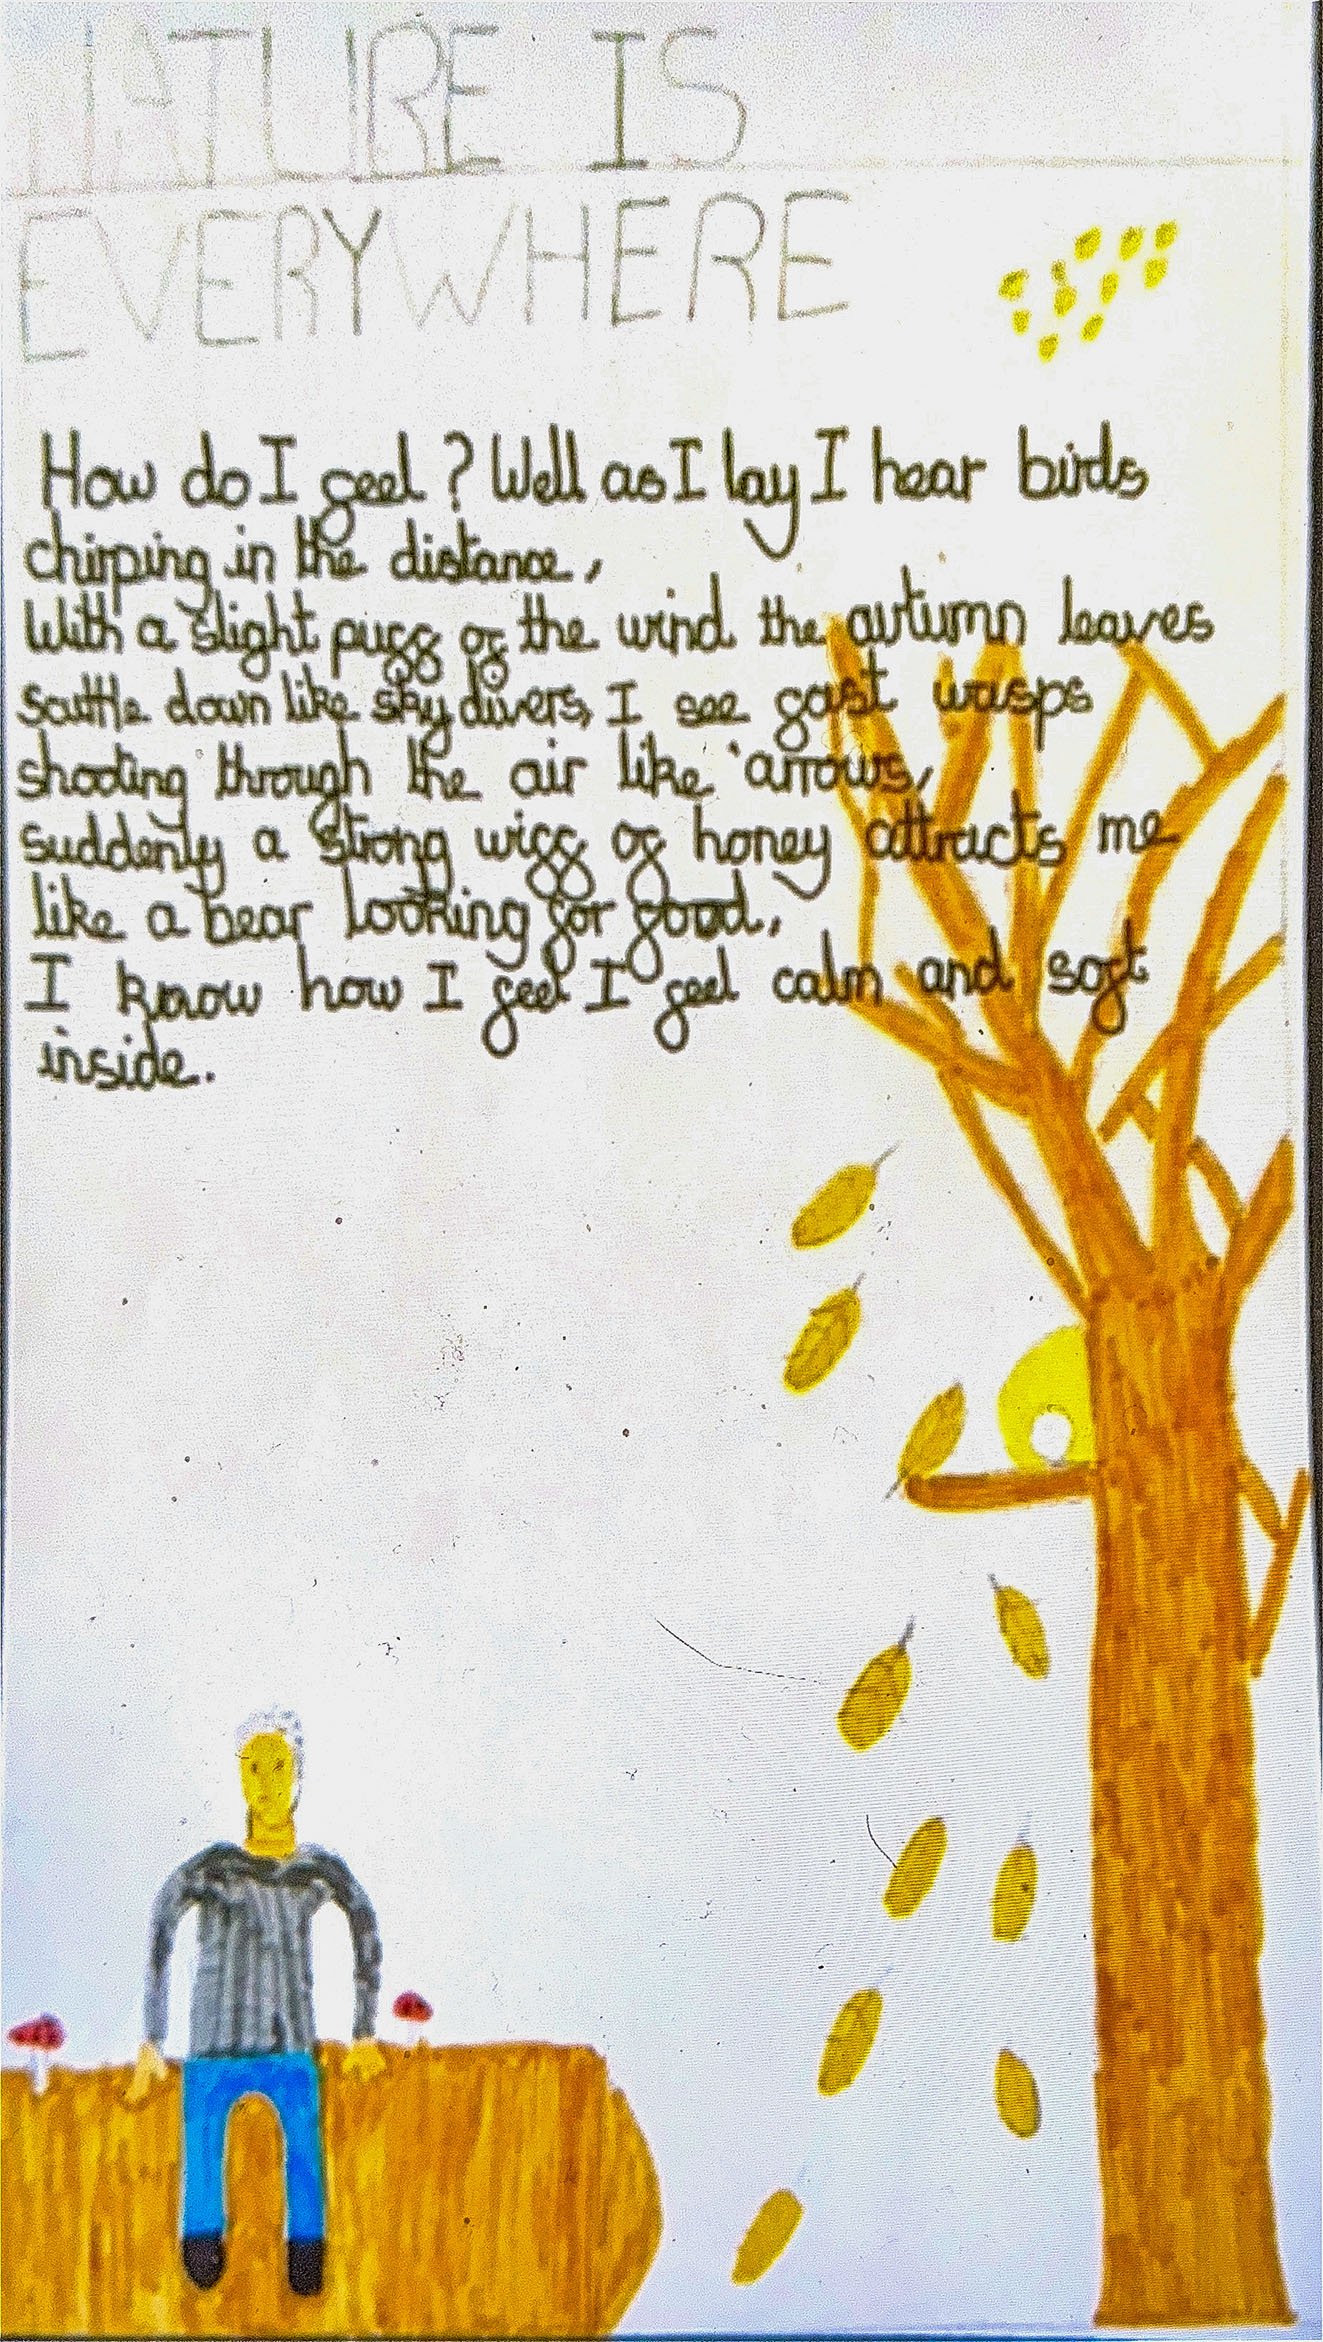 NATURE IS
EVERYWHERE
How do I feel? Well as I lay I hear birds
chirping in the distance,
With a slight puff of the wind the autumn leaves
sattle down like sky divers, I see fast wasps
shooting through the air like arrows,
suddenly a strong wiff of honey attracts me
like a bear looking for food,
I know how I feel I feel calm and soft
inside.